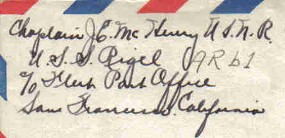 Chaplain J. E. Mc Henry U.S.N.R.
U.S.S. Rigel ARb1
c/o Fleet Post Office
San Francisco. California